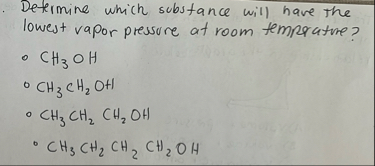 . Determine which substance will have the
lowest vapor pressure at room temprature?
o CH₃OH
o CH₃CH₂OH
o CH₃CH₂ CH₂OH
o CH₃CH₂ CH₂ CH₂OH